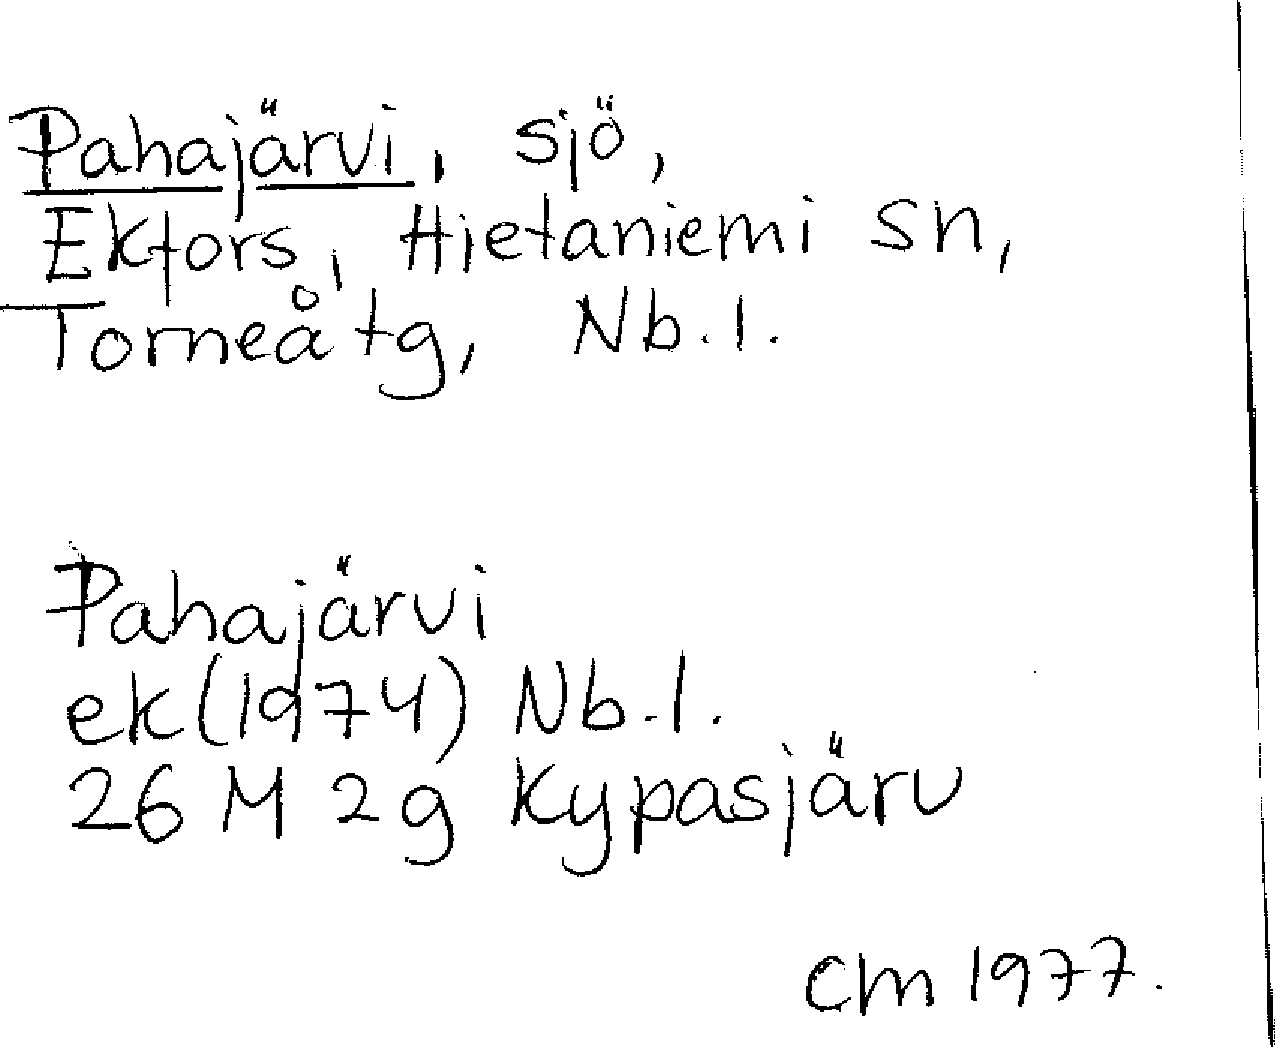 Pahajärvi, sjö,
Ektors, Hietaniemi sn,
Torneå tg, Nb.l.
Pahajärvi
ek (1974) Nb.l.
26 M 2g Kypasjärv
CM 1977.